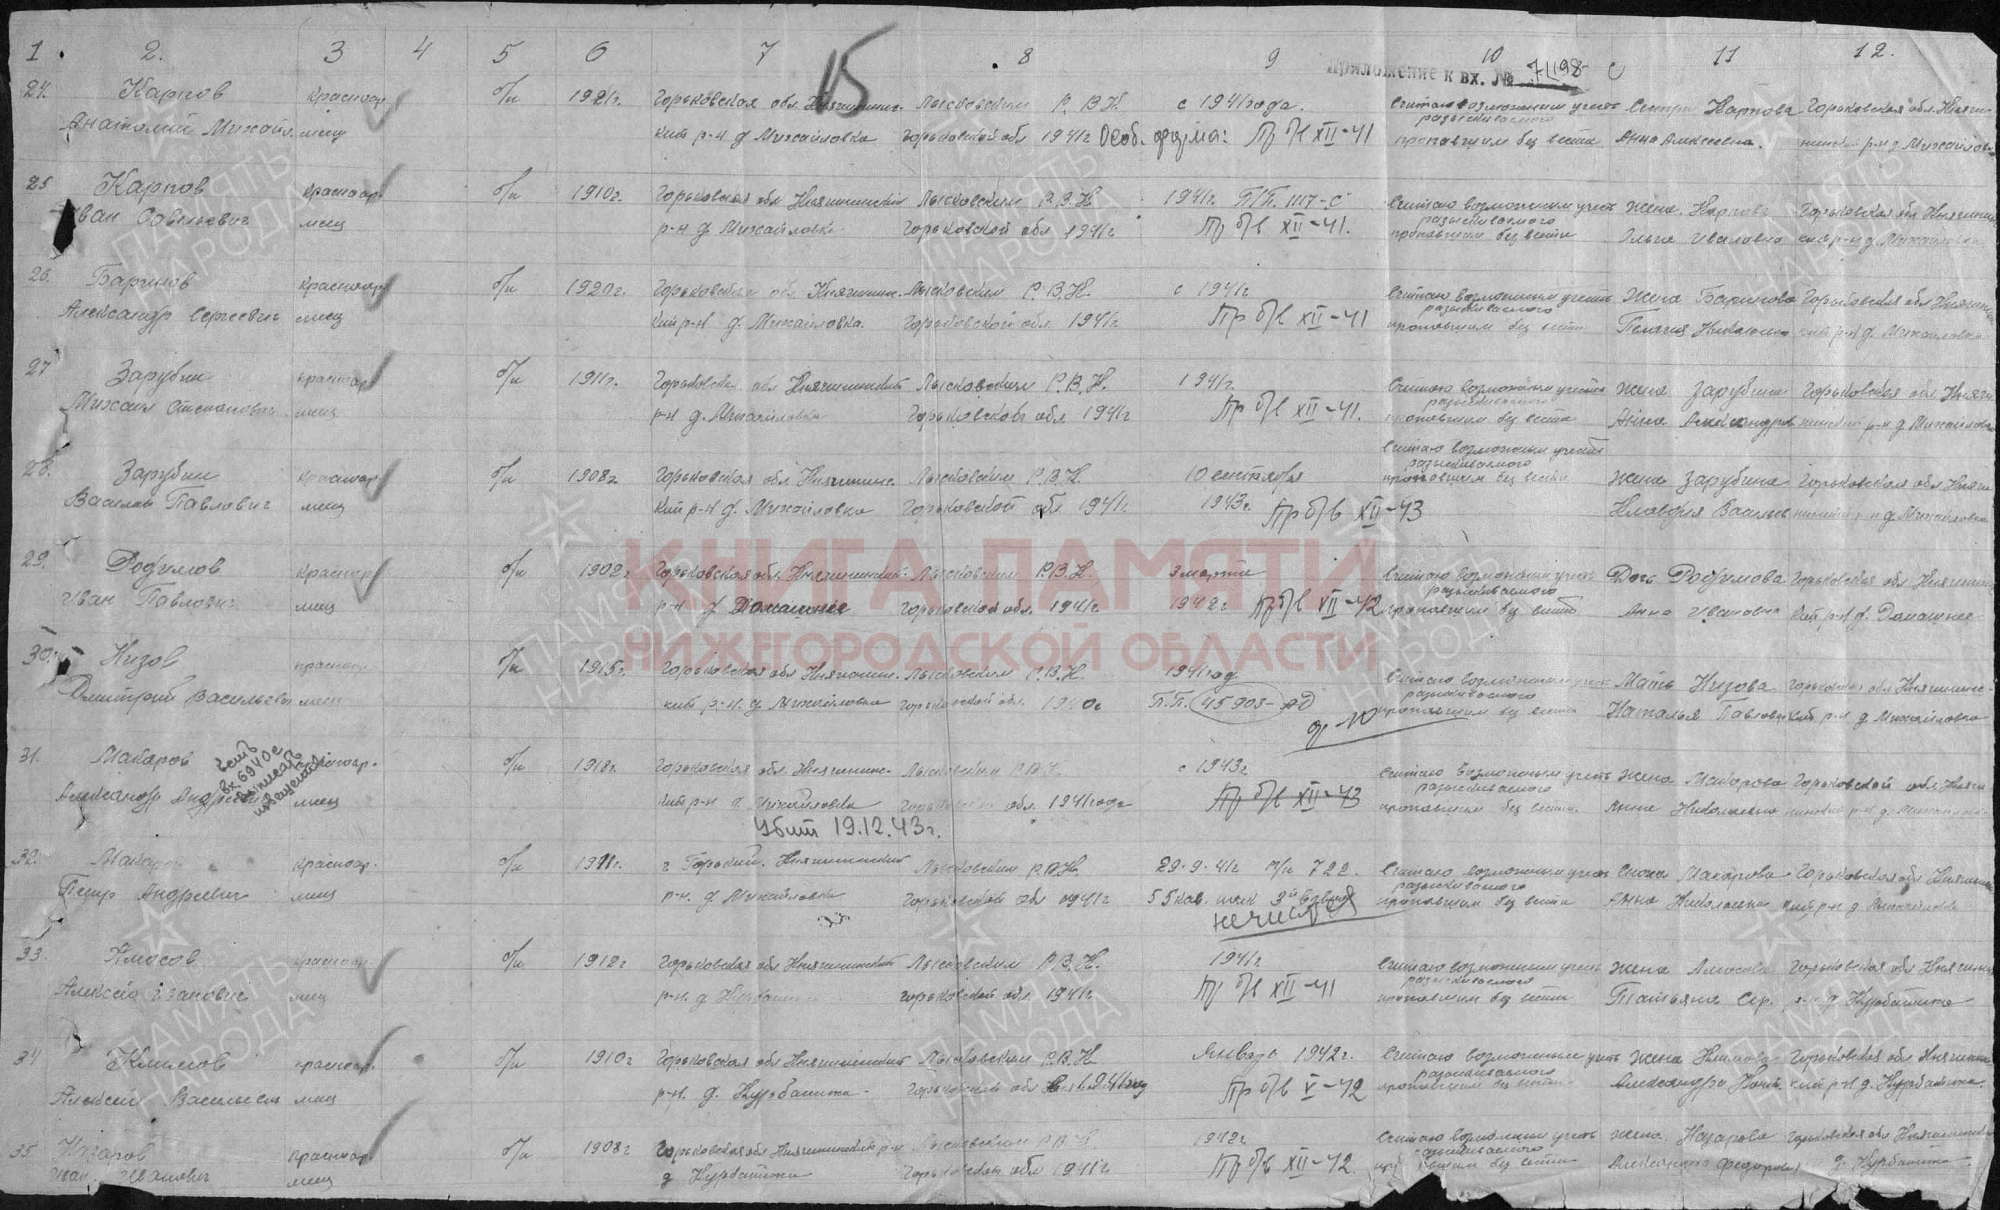 1 2. 3 4 5 6 7 15 8 9 10 11 12.
Приложение к вх. № 71198 с
24. Карпов красноар б/п 1921г. Горьковская обл. Княгинин- Лысковским Р.В.К с 1941 года. Считаю возможным учесть Сестра Карпова Горьковская обл. Княги-
разыскиваемого
Анатолий Михайл. меец кий р-н д. Михайловка Горьковской обл 1941г Особ. форма: Пр б/в XII-41 пропавшим без вести Анна Алексеевна. нинский р-н д. Михайлов-
25 Карпов красноар б/п 1910г. Горьковская обл Княгининский Лысковским Р.В.К 1941г. П/П. 1117-С Считаю возможным учесть жена Карпова Горьковская обл Княгинин
разыскиваемого
Иван Савельевич меец р-н д. Михайловка Горьковской обл 1941г Пр б/в XII-41. пропавшим без вести Ольга Ивановна кий р-н д. Михайловка
26. Баринов красноар б/п 1920г. Горьковская обл Княгинин- Лысковским Р.В.К с 1941г Считаю возможным учесть жена Баринова Горьковская обл Княгинин
разыскиваемого
Александр Сергеевич меец кий р-н д. Михайловка. Горьковской обл 1941г. Пр б/в XII-41 пропавшим без вести Пелагея кий р-н д. Михайловка
27 Зарубин красноар б/п 1911г. Горьковская обл Княгининский Лысковским Р.В.К. 1941г. Считаю возможным учесть жена Зарубина Горьковская обл Княги
разыскиваемого
Михаил Степанович меец р-н д. Михайловка Горьковской обл 1941г Пр б/в XII-41. пропавшим без вести Анна Александров нинский р-н д. Михайловка
Считаю возможным учесть
разыскиваемого
28. Зарубин красноар б/п 1908г Горьковская обл Княгининс- Лысковским Р.В.К 10 сентября пропавшим без вести жена Зарубина Горьковская обл Княги
Василий Павлович меец кий р-н д. Михайловка Горьковской обл 1941г 1943г. Пр б/в XII-43 Клавдия Васильев нинский р-н д. Михайловка
29. Родимов красноар б/п 1902г Горьковская обл. Княгининский- Лысковским Р.В.К. 3 марта Считаю возможным учесть Дочь Родимова Горьковская обл Княгинин
разыскиваемого
Иван Павлович меец р-н д Горьковской обл. 1941г 1942г Пр б/в VII-42 пропавшим без вести Анна Ивановна кий р-н д.
30. Низов красноар б/п 1915г. Горьковская обл Княгинин- Лысковским Р.В.К. 1941 год Считаю возможным учесть Мать Низова Горьковская обл Княгининс-
разыскиваемого
Дмитрий Васильевич меец кий р-н. д. Михайловка Горьковской обл. 1940г П.П. 45903-АД пропавшим без вести Наталья Павловна кий р-н д. Михайловка
31. Макаров есть вх 6940с выписать извещение красноар. б/п 1918г. Горьковская обл. Княгининс- Лысковским Р.В.К с 1943г Считаю возможным учесть жена Макарова Горьковской обл Княги-
разыскиваемого
Александр Андреевич меец кий р-н д. Михайловка Горьковской обл. 1941 года Пр б/в XII-43 пропавшим без вести. Анна Николаевна нинский р-н д. Михайловка
Убит 19.12.43г.
32. Макаров красноар. б/п 1911г. г Горький. Княгининский Лысковским Р.В.К. 29-9-41г п/п 722. Считаю возможным учесть Сноха Макарова Горьковская обл Княгинин
разыскиваемого
Петр Андреевич меец р-н. д. Михайловка Горьковской обл 1941г 55 кав. полк 3й взвод пропавшим без вести Анна Николаевна кий р-н д. Михайловка
не числится
33. Амосов красноар. б/п 1912г Горьковская обл Княгининский Лысковским Р.В.К. 1941г Считаю возможным учесть жена Амосова Горьковская обл Княгинин
разыскиваемого
Алексей Иванович меец р-н. д. Курбатиха Горьковской обл 1941г Пр б/в XII-41 пропавшим без вести Татьяна Сер. р-н д. Курбатиха
34 Климов красноар. б/п 1910г Горьковская обл Княгининский Лысковским Р.В.К Январь 1942г. Считаю возможным учесть жена Климова Горьковская обл Княгинин
разыскиваемого
Алексей Васильевич меец р-н. д. Курбатиха- Горьковской обл 1941 году Пр б/в V-42 пропавшим без вести Александра кий р-н д. Курбатиха
35 Назаров красноар б/п 1908г Горьковская обл Княгининский р-н Лысковским Р.В.К 1942г. Считаю возможным учесть жена. Назарова Горьковская обл Княгининский
разыскиваемого
Иван Иванович меец д Курбатиха Горьковской обл 1941г Пр б/в XII-42 без вести Александра Федоровна д. Курбатиха.
КНИГА ПАМЯТИ
НИЖЕГОРОДСКОЙ ОБЛАСТИ
ПАМЯТЬ НАРОДА